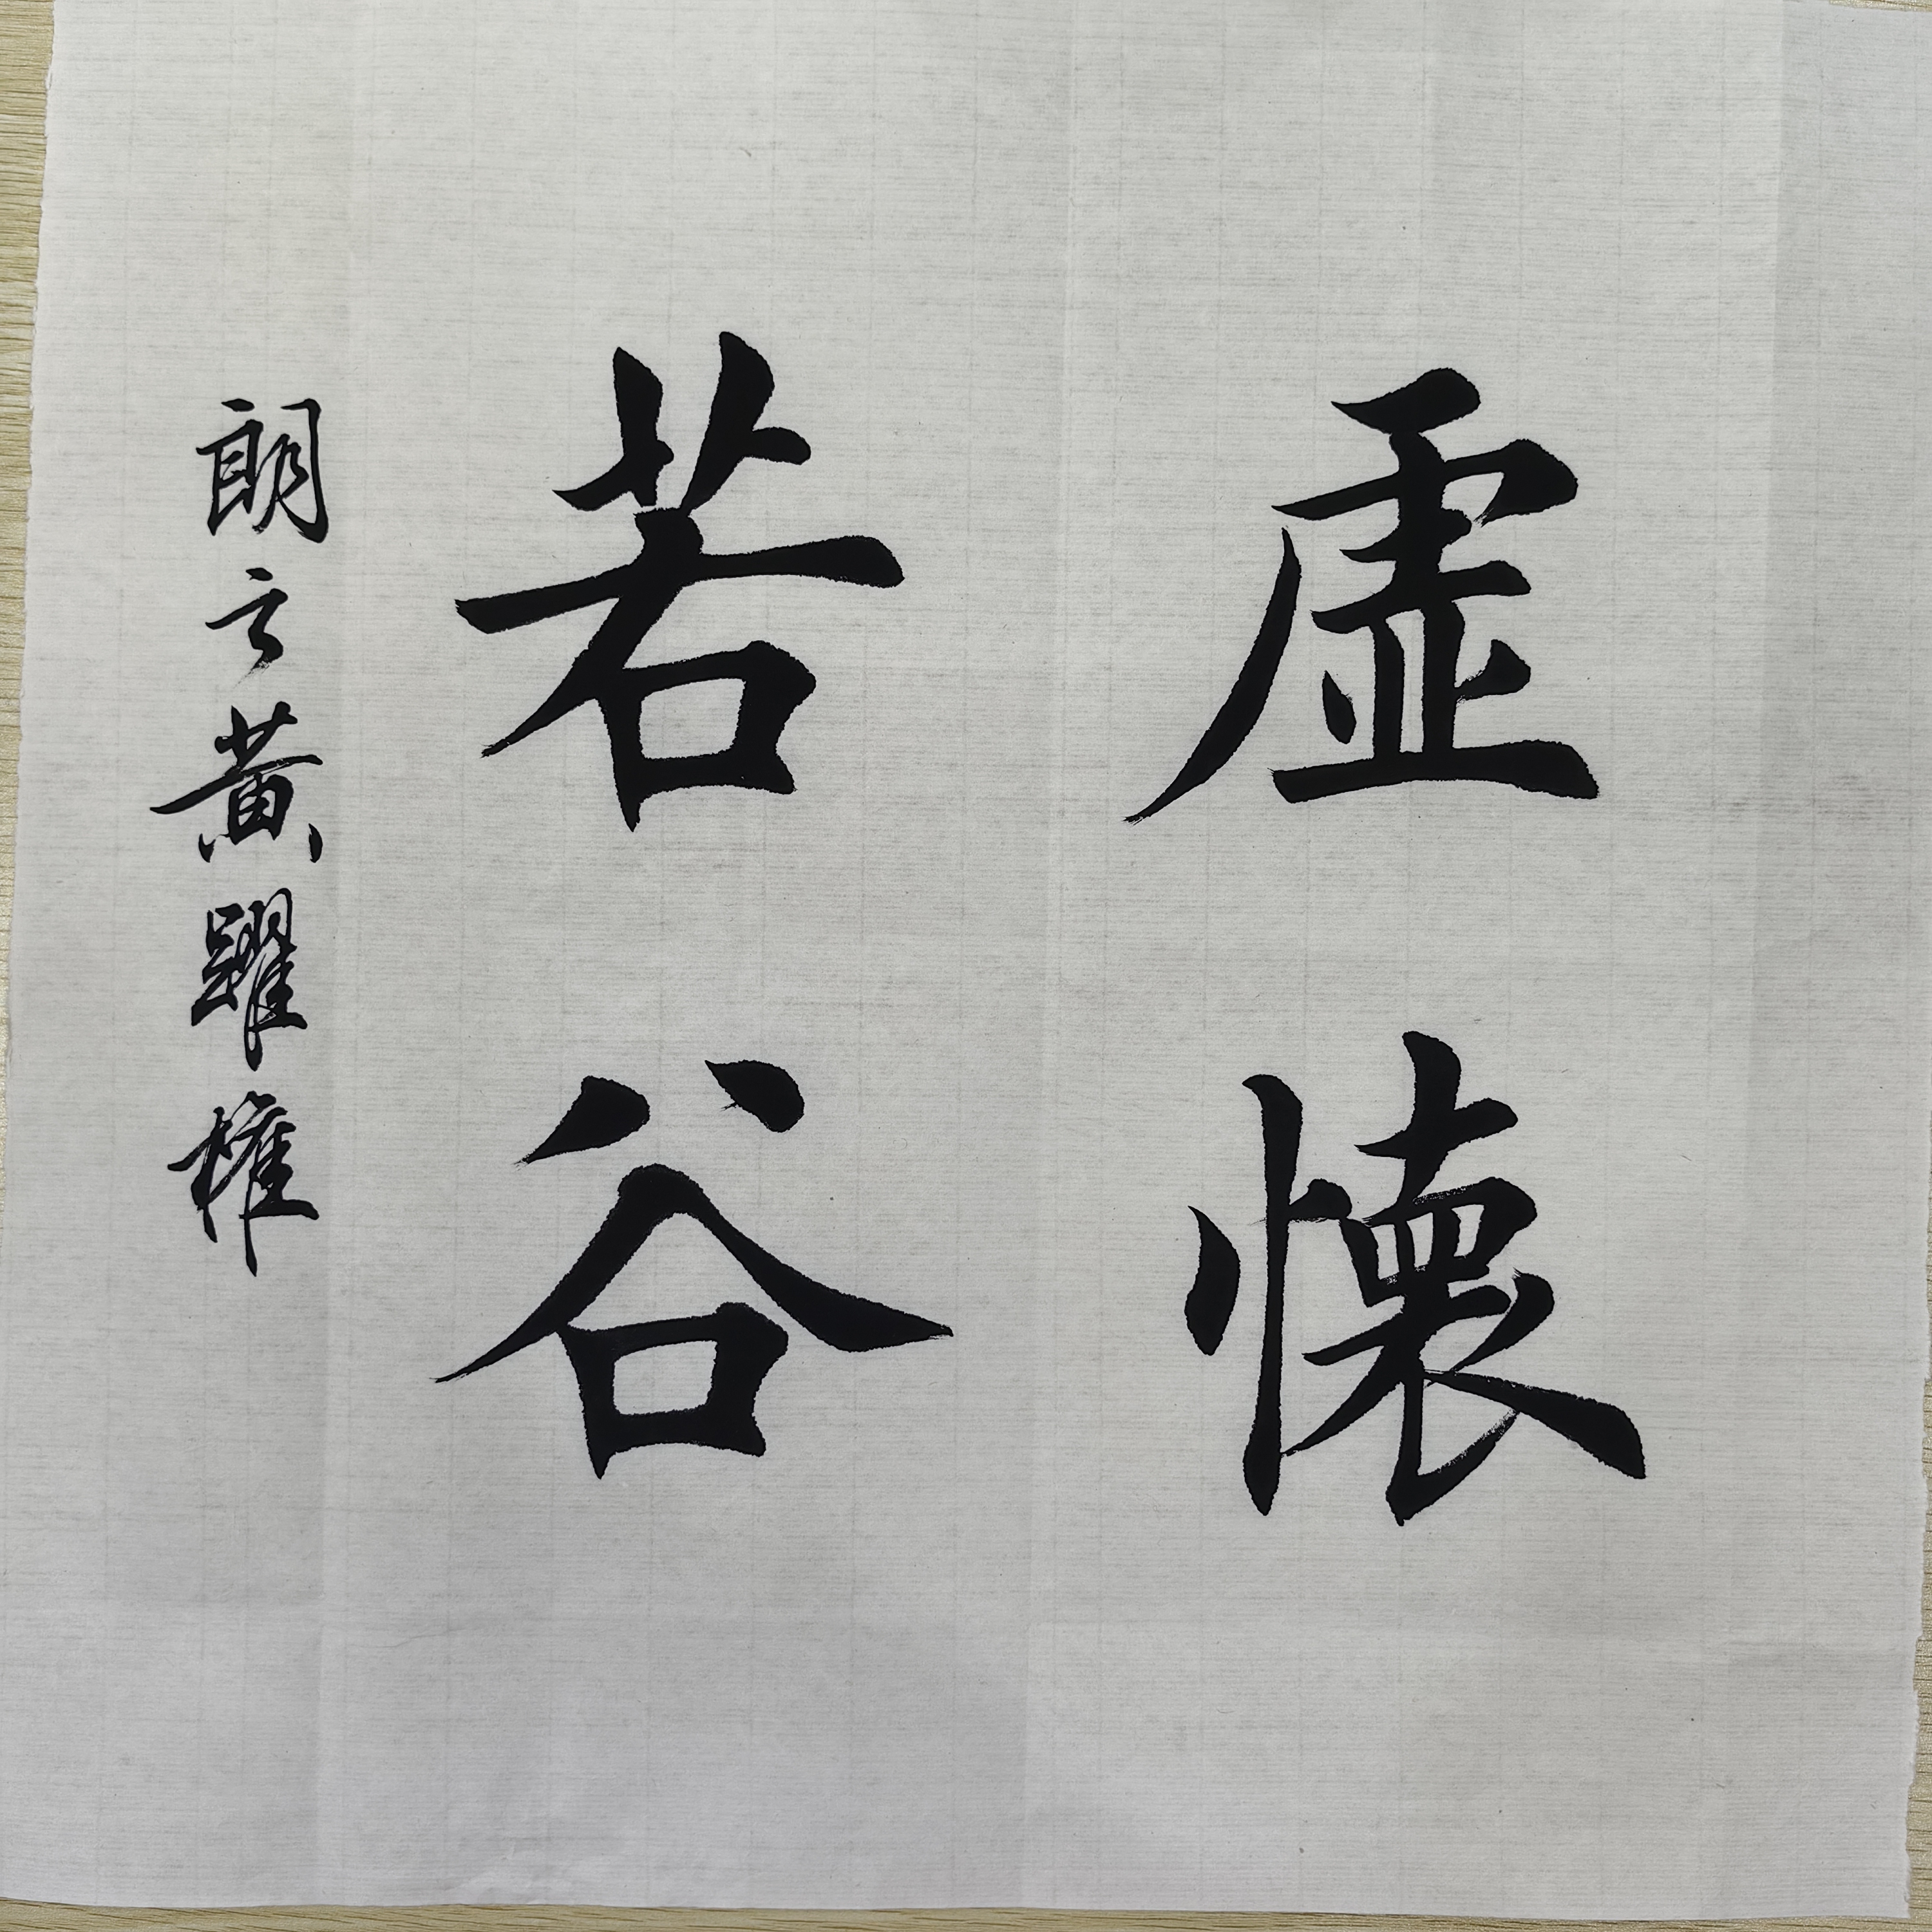 虛懷
若谷
朗之黃躍權